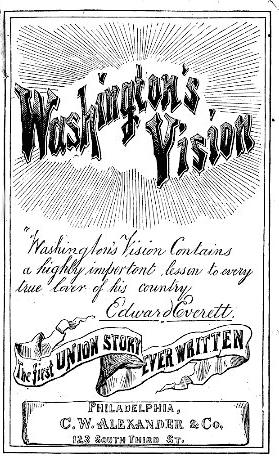 Washington's
Vision
"Washington's Vision Contains
a highly important lesson to every
true lover of his country
Edward Everett.
The First UNION STORY EVER WRITTEN
PHILADELPHIA,
C. W. ALEXANDER & Co,
123 SOUTH THIRD ST.